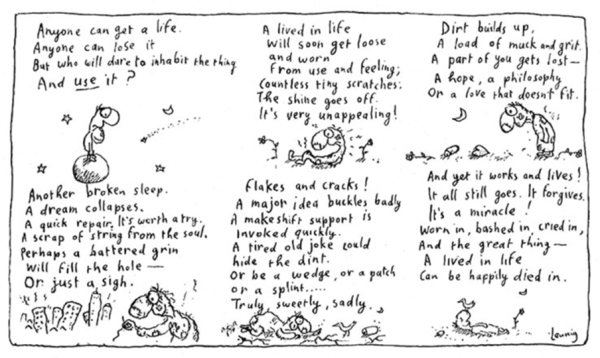 Anyone can get a life.
Anyone can lose it
But who will dare to inhabit the thing
And use it?
A lived in life
Will soon get loose
and worn
From use and feeling;
Countless tiny scratches:
The shine goes off.
It's very unappealing!
Dirt builds up,
A load of muck and grit.
A part of you gets lost —
A hope, a philosophy
Or a love that doesn't fit.
Another broken sleep.
A dream collapses.
A quick repair. It's worth a try.
A scrap of string from the soul.
Perhaps a battered grin
Will fill the hole —
Or just a sigh.
Flakes and cracks!
A major idea buckles badly
A makeshift support is
Invoked quickly.
A tired old joke could
hide the dint.
Or be a wedge, or a patch
or a splint.....
Truly, sweetly, sadly.
And yet it works and lives!
It all still goes. It forgives.
It's a miracle!
Worn in, bashed in, cried in,
And the great thing —
A lived in life
Can be happily died in.
Leunig